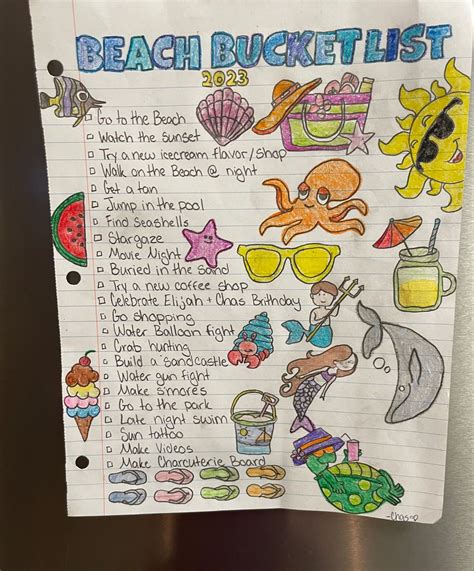 BEACH BUCKET LIST
2023
Go to the Beach
Watch the sunset
Try a new icecream flavor/shop
Walk on the Beach @ night
Get a tan
Jump in the pool
Find Seashells
Stargaze
Movie Night
Buried in the Sand
Try a new coffee shop
Celebrate Elijah + Chas Brithday
Go shopping
Water Balloon fight
Crab hunting
Build a sandcastle
Water gun fight
Make s'mores
Go to the park
Late night swim
Sun tattoo
Make Videos
Make Charcuterie Board